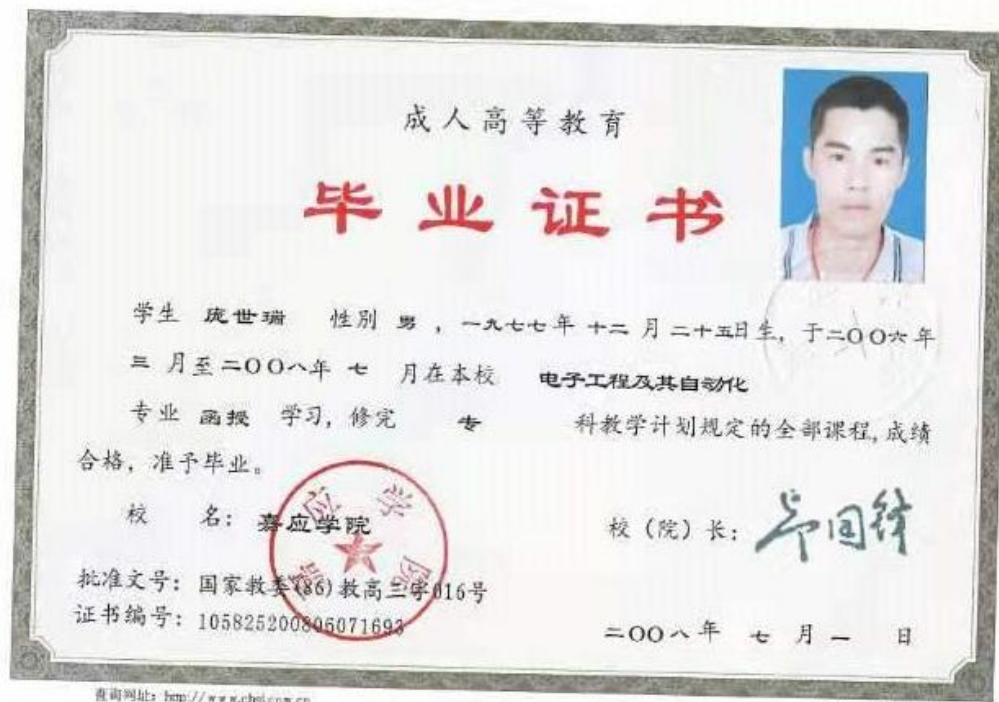 成人高等教育
毕业证书
学生 庞世瑞 性别 男 ，一九七七年 十二 月 二十五日生，于二〇〇六年
三 月至二〇〇八年 七 月在本校 电子工程及其自动化
专业 函授 学习，修完 专 科教学计划规定的全部课程，成绩
合格，准予毕业。
校 名：嘉应学院
嘉应学院
校（院）长：
批准文号：国家教委(86)教高三字016号
证书编号：105825200806071693
二〇〇八年 七 月 一 日
查询网址：http://www.chsi.com.cn